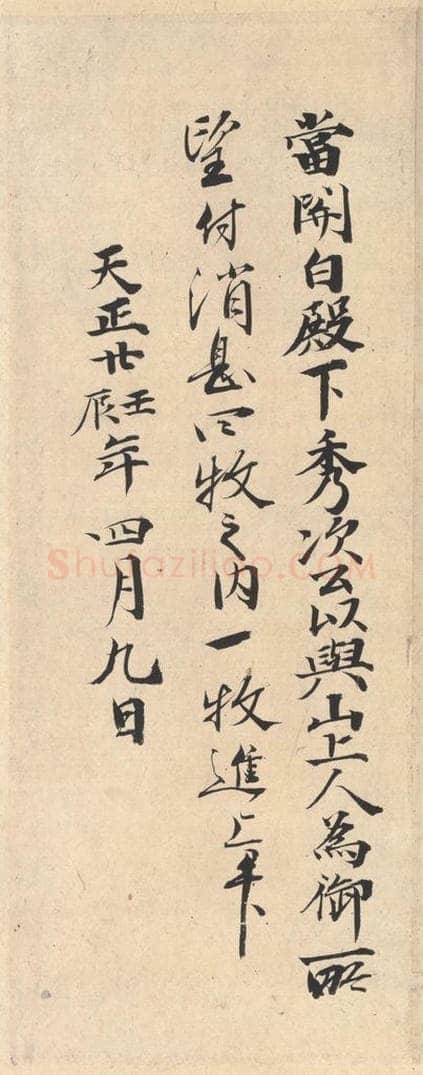 當開白殿下秀次公以與山上人為御所
望付消息四牧之内一牧進上畢
天正廿壬辰年四月九日
Shufaziliao.com